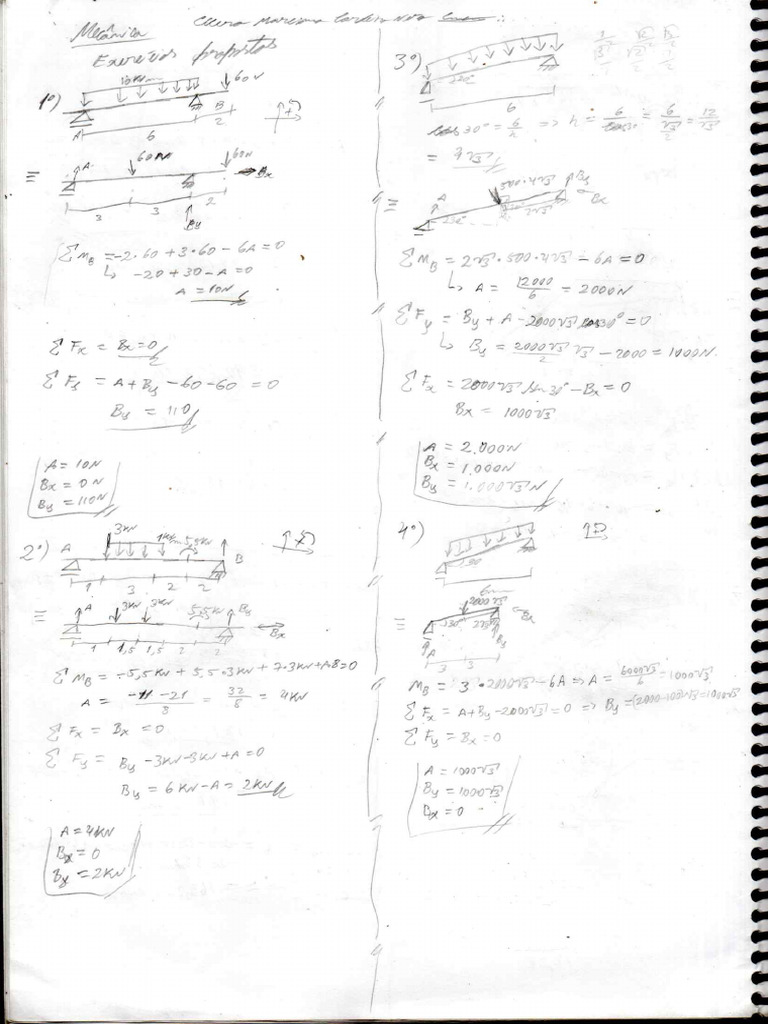 Mecânica
Exercícios propostos
1º)
60N
A
B
6
2
60N
60N
A
Bx
3
3
2
By
∑ M_B = -2·60 + 3·60 - 6A = 0
↳ -20 + 30 - A = 0
A = 10N
∑ Fx = Bx = 0
∑ Fy = A + By - 60 - 60 = 0
By = 110
A = 10N
Bx = 0N
By = 110N
2º)
A
3KN
5,5KN
B
1
3
2
2
A
3KN
3KN
5,5K
By
Bx
1
1,5
1,5
2
2
∑ M_B = -5,5KN + 5,5·3KN + 7·3KN + A8 = 0
A = -11 - 21 / 8 = 32 / 8 = 4KN
∑ Fx = Bx = 0
∑ Fy = By - 3KN - 3KN + A = 0
By = 6KN - A = 2KN
A = 4KN
Bx = 0
By = 2KN
3º)
6
cos 30° = 6/h => h = 6/cos30 = 6/(√3/2) = 12/√3
= 4√3
A
500·4√3
By
Bx
30°
2√3
∑ M_B = 2√3·500·4√3 - 6A = 0
↳ A = 12000/6 = 2000N
∑ Fy = By + A - 2000√3 cos30° = 0
↳ By = 2000√3/2 √3 - 2000 = 1000N.
∑ Fx = 2000√3 sen 30° - Bx = 0
Bx = 1000√3
A = 2.000N
Bx = 1.000N
By = 1.000√3N
4º)
30
6m
2000√3
Bx
30°
2√3
By
A
3
3
M_B = 3·2000√3 - 6A => A = 6000√3/6 = 1000√3
∑ Fx = A + By - 2000√3 = 0 => By = (2000-1000)√3 = 1000√3
∑ Fy = Bx = 0
A = 1000√3
By = 1000√3
Bx = 0